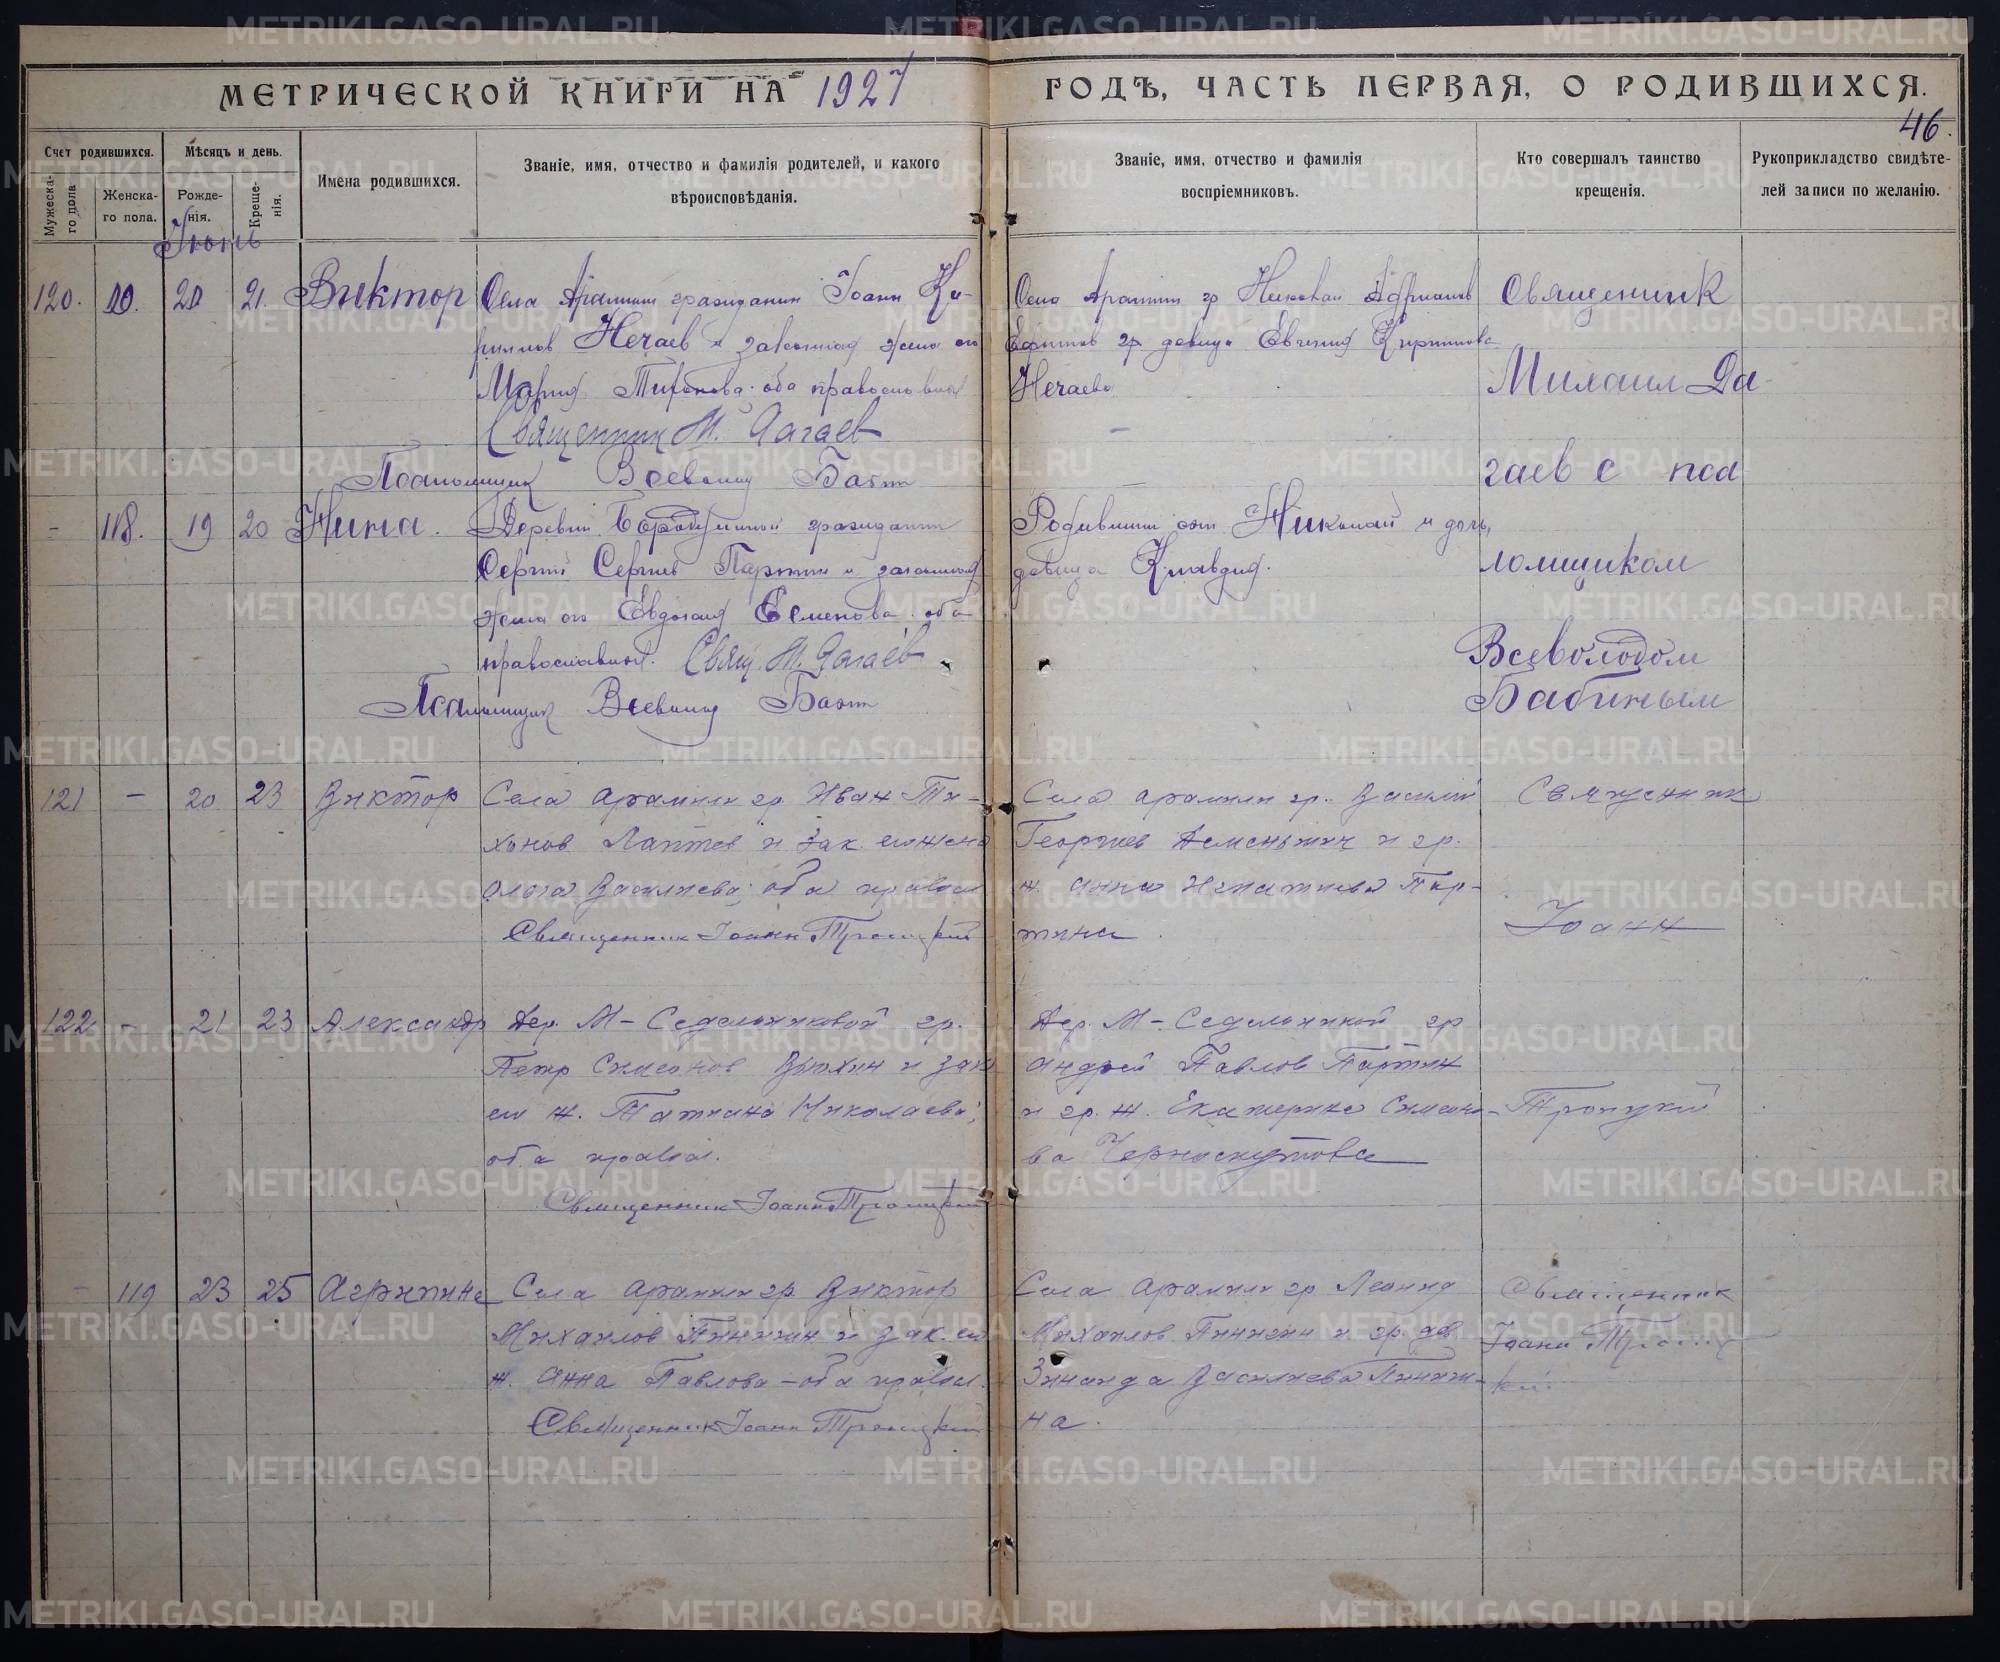 МЕТРИЧЕСКОЙ КНИГИ НА 1927
ГОДѢ, ЧАСТЬ ПЕРВАЯ, О РОДИВШИХСЯ.
46.
Счет родившихся.
Мужеска-
го пола
Женска-
го пола.
Мѣсяцъ и день.
Рожде-
нія.
Креще-
нія.
Имена родившихся.
Званіе, имя, отчество и фамилія родителей, и какого
вѣроисповѣданія.
Званіе, имя, отчество и фамилія
воспріемниковъ.
Кто совершалъ таинство
крещенія.
Рукоприкладство свидѣте-
лей записи по желанію.
Июнь
120. 20 21. Виктор
Села Арамили гражданин Іоанн Ки-
риллов Нечаев и законная жена его
Мария Тихонова оба православные
Священник М. Дагаев
Псаломщик Всеволод Бабин
Села Арамили гр Николай
гр девица Евгения Кириллова
Нечаева
Священник
Михаил Да-
гаев с пса
ломщиком
Всеволодом
Бабиным
- 118. 19 20 Нина.
Деревни гражданин
Сергий Сергиев Партин и законная
жена его Евдокия Семенова оба
православные. Свящ. М. Дагаев
Псаломщик Всеволод Бабин
Родившии сын Николай и дочь,
девица Клавдия.
121 - 20 23 Виктор
Села Арамили гр. Иван Ти-
хонов Лаптев и зак. его жена
Ольга Васильева; оба правосл
Священник Іоанн Троицкий
Села Арамили гр. Василий
Георгиев и гр.
ж. Анна Игнатиева Пар-
тина.
Священник
Іоанн
Троицкий
122 - 21 23 Александр
Дер. М-Седельниковой гр.
Петр Симеонов Вьюхин и зак
его ж. Татиана Николаева;
оба правосл.
Священник Іоанн Троицкий
Дер. М-Седельникой гр
Андрей Павлов Партин
и гр. ж. Екатерина Симеоно-
ва Черноскутова
- 119 23 25 Агрипина
Села Арамили гр. Виктор
Михаилов Пинигин и зак. его
ж. Анна Павлова - оба правосл.
Священник Іоанн Троицкий
Села Арамили гр Леонид
Михаилов Пинигин и гр. дев
Зинаида Васильева Пиниги-
на.
Священник
Іоанн Троиц
кий
METRIKI.GASO-URAL.RU